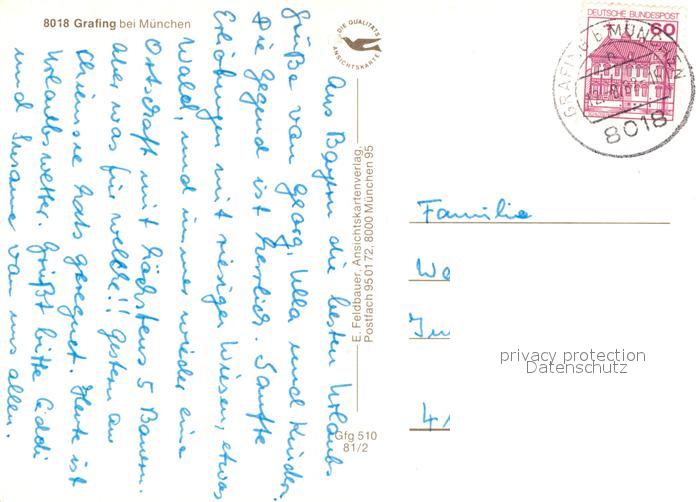 8018 Grafing bei München
DIE QUALITÄTS
ANSICHTSKARTE
Aus Bayern die besten Urlaubs
grüße von Georg, Ulla und Kinder.
Die Gegend ist herrlich. Sanfte
Erhöhungen mit riesigen Wiesen, etwas
Wald, und immer wieder eine
Ortschaft mit höchstens 5 Bauern.
Aber was für welche!! Gestern am
Chiemsee hats geregnet. Heute ist
Urlaubswetter. Grüßt bitte
und Susanne von uns allen.
E. Feldbauer, Ansichtskartenverlag,
Postfach 950172, 8000 München 95
Gfg 510
81/2
DEUTSCHE BUNDESPOST
60
GRAFING b MÜNCHEN
8018
Familie
We
4
privacy protection
Datenschutz